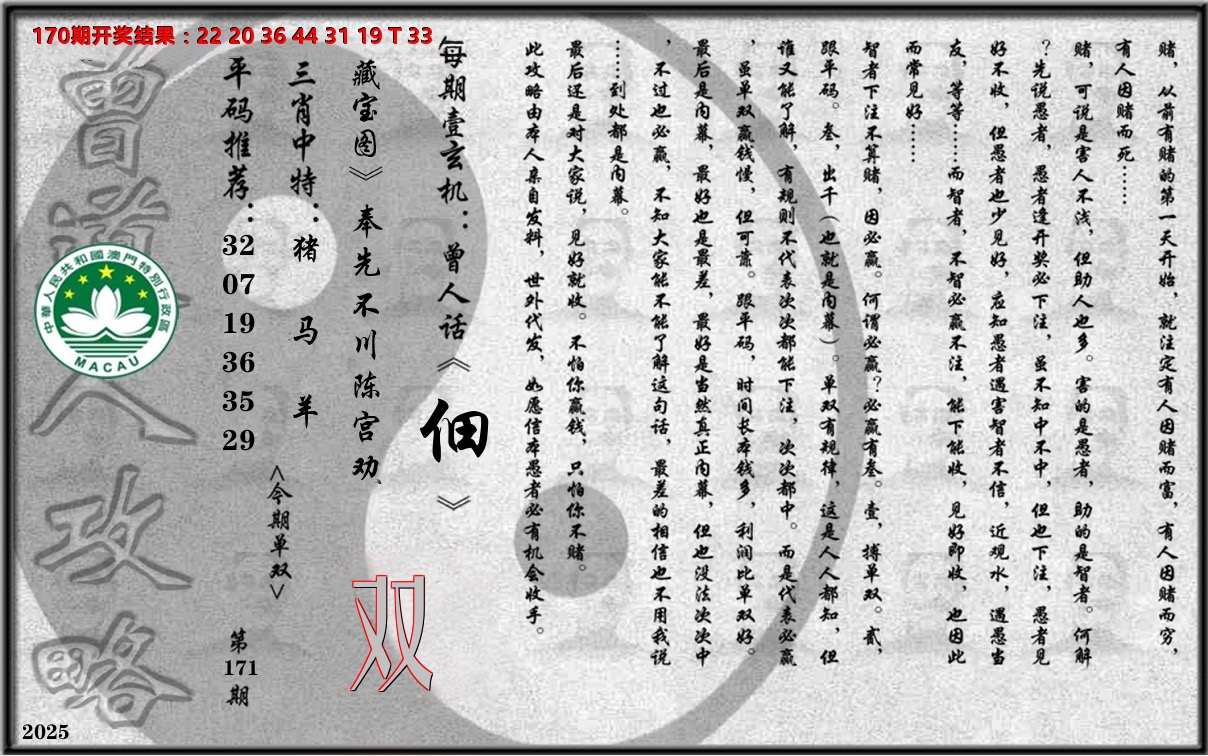 170期开奖结果：22 20 36 44 31 19 T 33
赌，从前有赌的第一天开始，就注定有人因赌而富，有人因赌而穷，
有人因赌而死……
赌，可说是害人不浅，但助人也多。害的是愚者，助的是智者。何解
？先说愚者，愚者逢开奖必下注，虽不知中不中，但也下注，愚者见
好不收，但愚者也少见好，应知愚者遇害智者不信，近观水，遇愚当
友，等等……而智者，不智必赢不注，能下能收，见好即收，也因此
而常见好……
智者下注不算赌，因必赢。何谓必赢？必赢有叁。壹，搏单双。贰，
跟平码。叁，出千（也就是内幕）。单双有规律，这是人人都知，但
谁又能了解，有规则不代表次次都能下注，次次都中。而是代表必赢
，虽单双赢钱慢，但可靠。跟平码，时间长本钱多，利润比单双好。
最后是内幕，最好也是最差，最好是当然真正内幕，但也没法次次中
，不过也必赢，不知大家能不能了解这句话，最差的相信也不用我说
……到处都是内幕。
最后还是对大家说，见好就收。不怕你赢钱，只怕你不赌。
此攻略由本人亲自发料，世外代发，如愿信本愚者必有机会收手。
每期壹玄机：曾人话《佃》
藏宝图》奉先不川陈宫劝、
双
三肖中特：猪 马 羊
<今期单双>
平码推荐：32 07 19 36 35 29
第171期
曾道人攻略
中華人民共和國澳門特別行政區
MACAU
2025